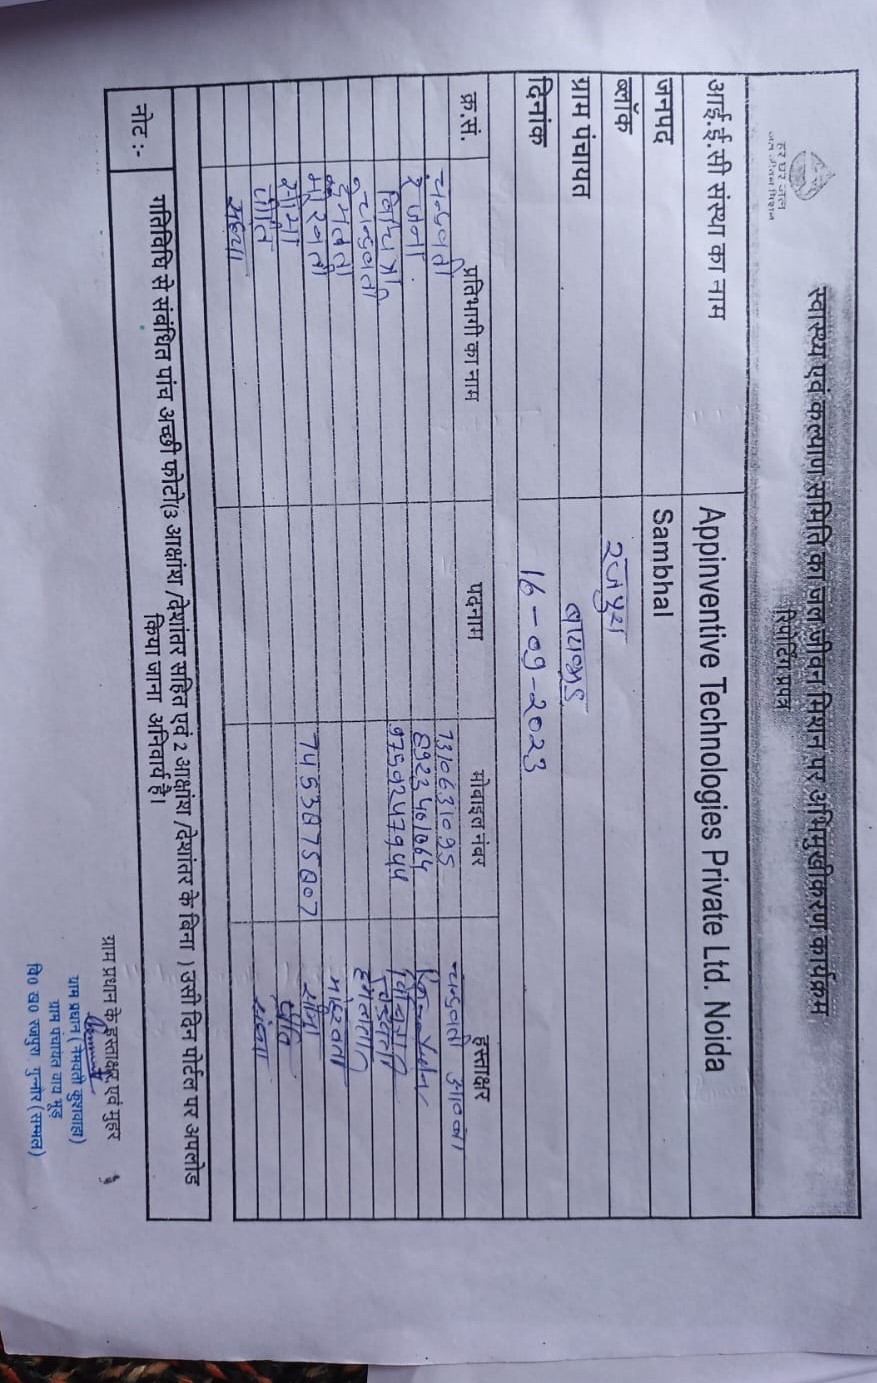 हर घर जल
जल जीवन मिशन
स्वास्थ्य एवं कल्याण समिति का जल जीवन मिशन पर अभिमुखीकरण कार्यक्रम
रिपोर्टिंग प्रपत्र
आई.ई.सी संस्था का नाम Appinventive Technologies Private Ltd. Noida
जनपद Sambhal
ब्लॉक रजपुरा
ग्राम पंचायत बाघामुड
दिनांक 16-09-2023
क्र.सं. प्रतिभागी का नाम पदनाम मोबाइल नंबर हस्ताक्षर
चन्द्रवती 7310631095 चन्द्रवती
रंजना 8923461064
9759247944
चन्द्रवती
हेमलता
7453875807
प्रीति प्रीति
संध्या
नोट :- गतिविधि से संबंधित पांच अच्छी फोटो(3 आक्षांश /देशांतर सहित एवं 2 आक्षांश /देशांतर के बिना ) उसी दिन पोर्टल पर अपलोड
किया जाना अनिवार्य है।
ग्राम प्रधान के हस्ताक्षर एवं मुहर
ग्राम प्रधान (नेमवती कुशवाहा)
ग्राम पंचायत वाघ मूड
वि० ख० रजपुरा, गुन्नौर (सम्भल)